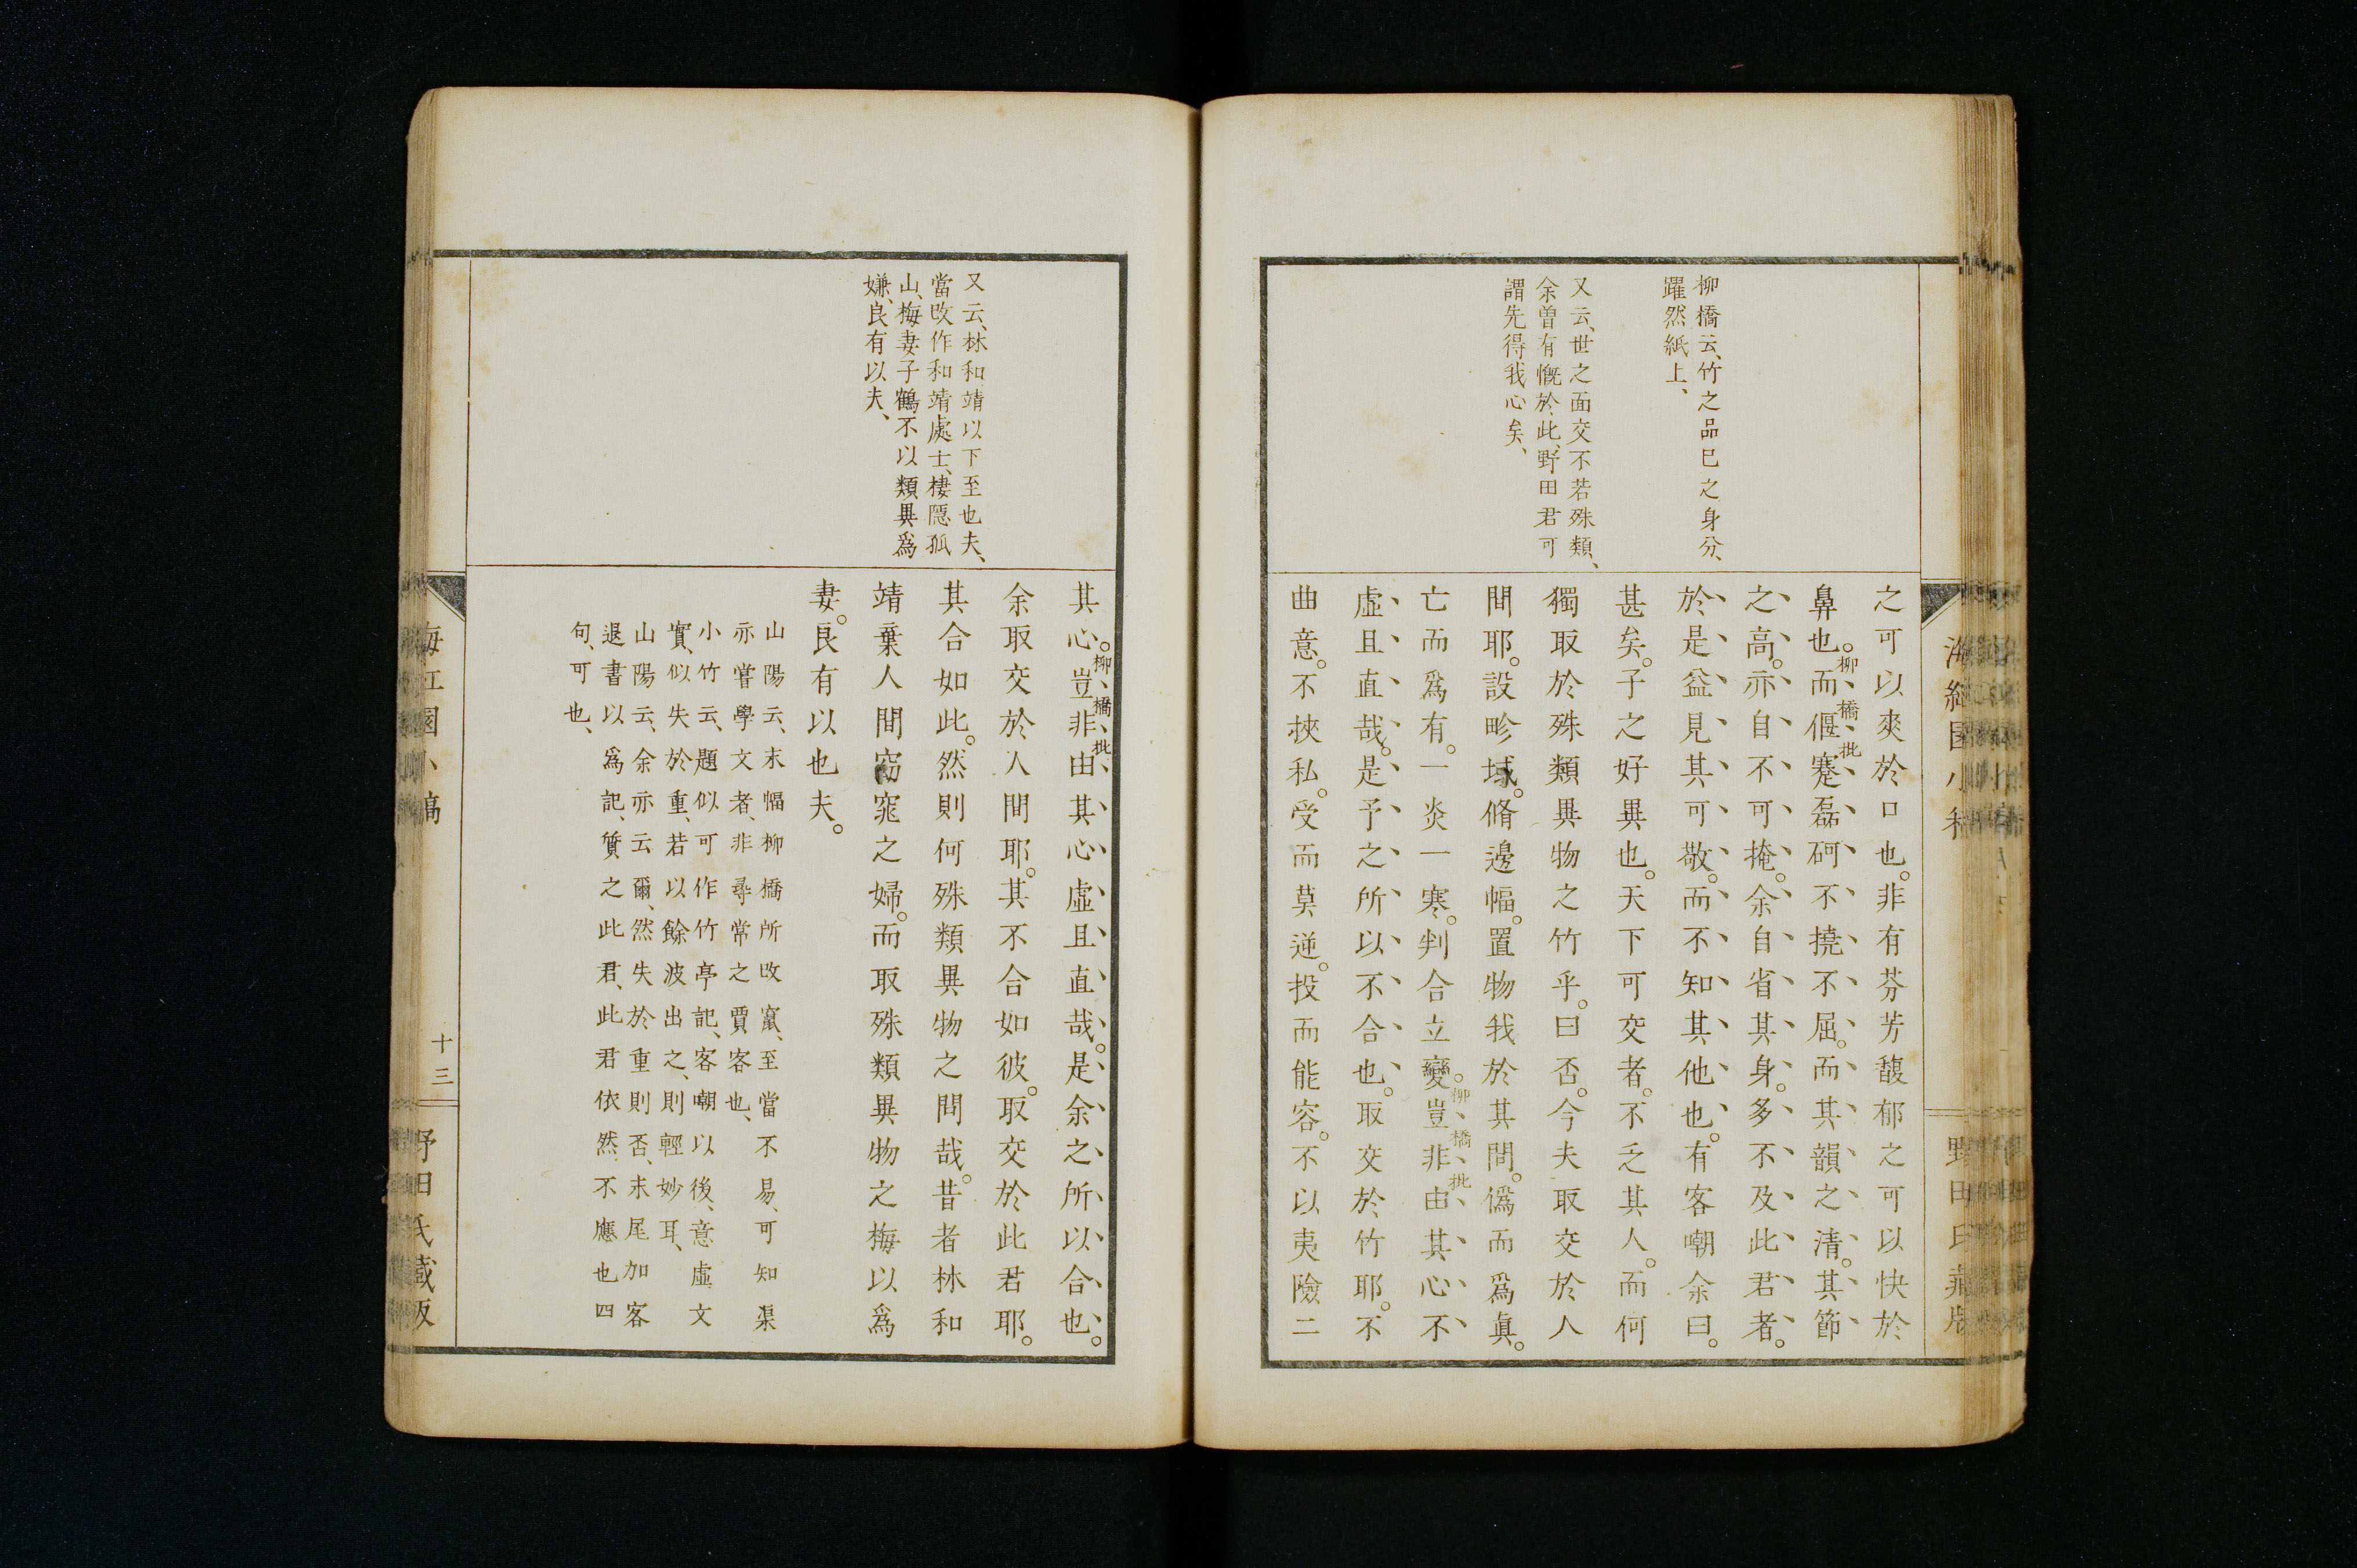 柳橋云、竹之品已之身分、
躍然紙上、
又云、世之面交不若殊類、
余曽有慨於此、野田君可
謂先得我心矣、
之可以爽於口也。非有芬芳馥郁之可以快於
鼻也。而偃蹇磊砢不撓不屈。而其韻之清。其節
柳橋批
之高。亦自不可掩。余自省其身。多不及此君者。
於是益見其可敬。而不知其他也。有客嘲余曰。
甚矣。子之好異也。天下可交者。不乏其人。而何
獨取於殊類異物之竹乎。曰否。今夫取交於人
間耶。設畛域。脩邊幅。置物我於其間。僞而爲眞。
亡而爲有。一炎一寒。判合立變。豈非由其心不
柳橋批
虛且直哉。是予之所以不合也。取交於竹耶。不
曲意。不挾私。受而莫逆。投而能容。不以夷險二
又云、林和靖以下至也夫、
當改作和靖處士、棲隱孤
山、梅妻子鶴、不以類異爲
嫌、良有以夫、
其心。豈非由其心虛且直哉。是余之所以合也。
柳橋批
余取交於人間耶。其不合如彼。取交於此君耶。
其合如此。然則何殊類異物之問哉。昔者林和
靖棄人間窈窕之婦。而取殊類異物之梅以爲
妻。良有以也夫。
山陽云、末幅柳橋所改竄、至當不易、可知渠
亦嘗學文者、非尋常之賈客也、
小竹云、題似可作竹亭記、客嘲以後、意虛文
實、似失於重、若以餘波出之、則輕妙耳、
山陽云、余亦云爾、然失於重則否、末尾加客
退書以爲記、質之此君、此君依然不應也四
句、可也、
海紅園小稿
十三
野田氏藏版